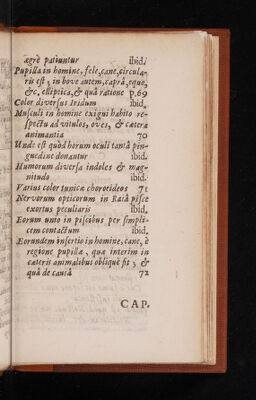 ægrè patiuntur ibid.
Pupilla in homine, fele, cane, circula-
ris est, in bove autem, caprâ, equo,
&c. elliptica, & quâ ratione p.69
Color diversus Iridum ibid.
Musculi in homine exigui habito re-
spectu ad vitulos, oves, & cætera
animantia 70
Unde est quòd horum oculi tantâ pin-
guedine donantur ibid.
Humorum diversa indoles & mag-
nitudo ibid.
Varius color tunicæ choroeideos 71
Nervorum opticorum in Raiâ pisce
exortus peculiaris ibid.
Eorum unio in piscibus per simpli-
cem contactum ibid.
Eorundem insertio in homine, cane, è
regione pupillæ, quæ interim in
cæteris animalibus obliquè fit, &
quâ de causâ 72
CAP.